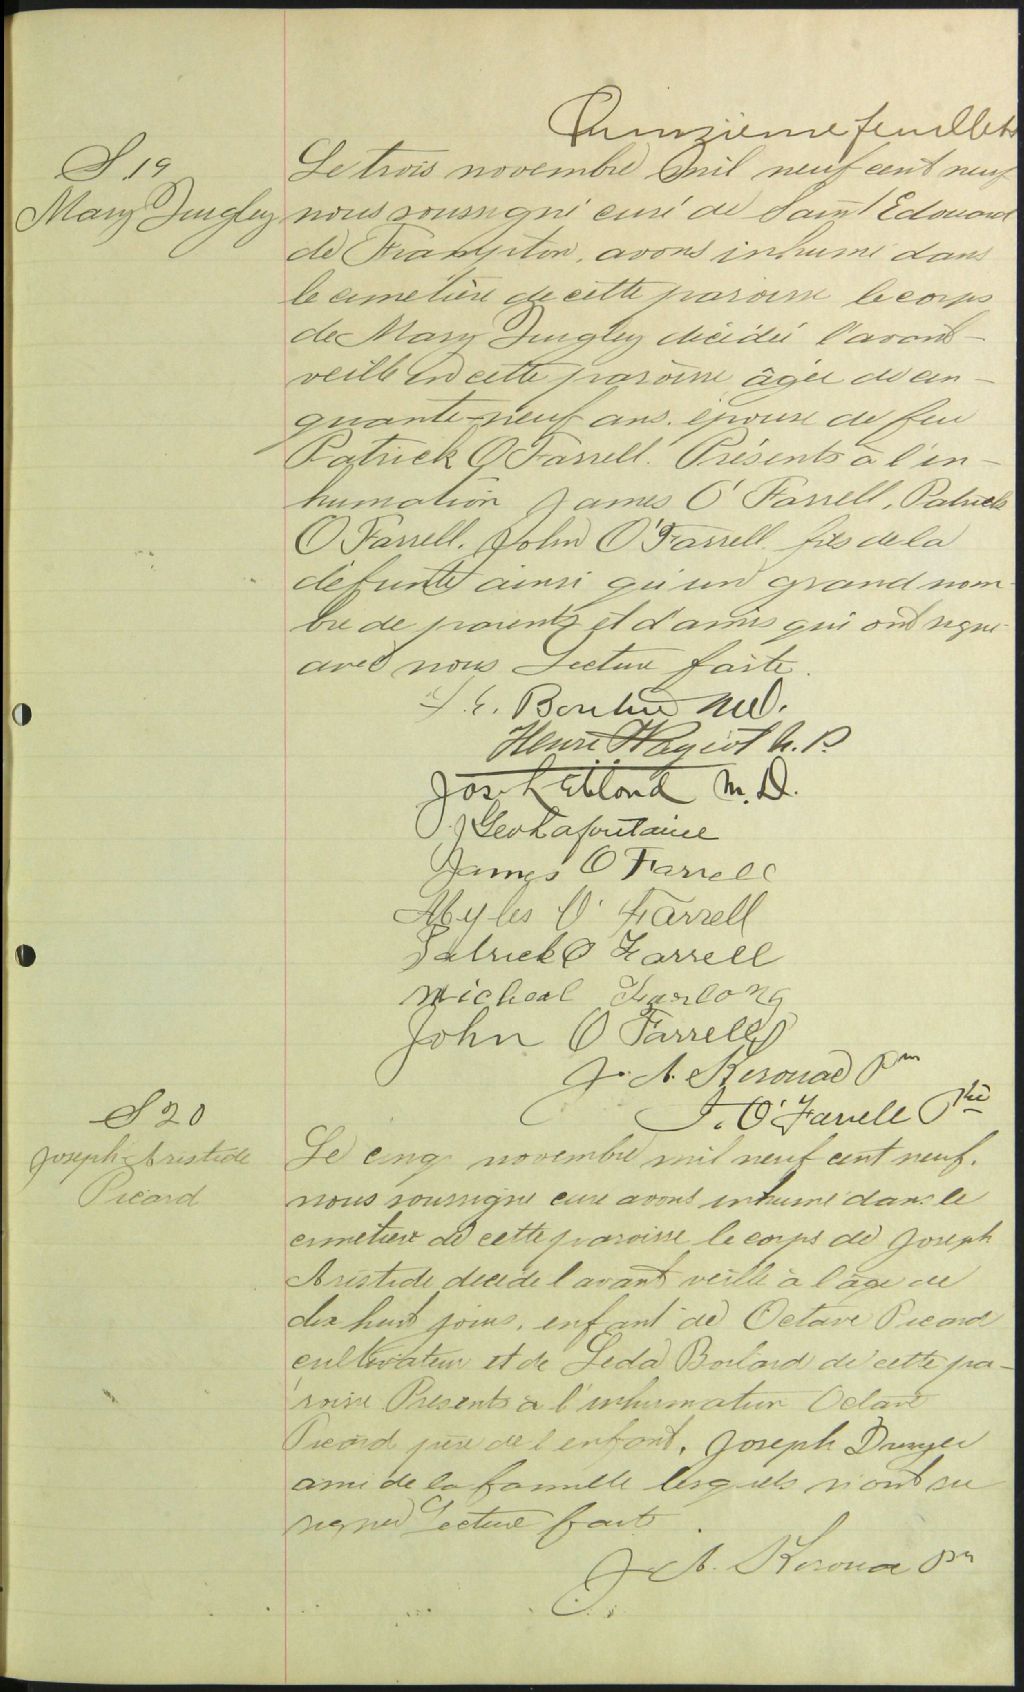 Quinzieme feuillet
S 19
Mary
Le trois novembre mil neuf cent neuf
nous soussigné curé de Saint Edouard
de Frampton, avons inhumé dans
le cimetière de cette paroisse le corps
de Mary décédée l'avant-
veille en cette paroisse âgée de cin-
quante-neuf ans. épouse de feu
Patrick O'Farrell. Présents à l'in-
humation James O'Farrell, Patrick
O'Farrell, John O'Farrell fils de la
défunte ainsi qu'un grand nom-
bre de parents et d'amis qui ont signé
avec nous Lecture faite.
M.D.
Henri
M.D.
J Geo Lafontaine
James O Farrell
Myles O' Farrell
Patrick O Farrell
Micheal Furlong
John O Farrell
J. A. Kerouac Ptre
J. O'Farrell Ptre
S 20
Joseph Aristide
Picard
Le cinq novembre mil neuf cent neuf.
nous soussigné curé avons inhumé dans le
cimetière de cette paroisse le corps de Joseph
Aristide décédé l'avant veille à l'âge de
dix huit jours, enfant de Octave Picard
cultivateur et de Leda de cette pa-
roisse Présents à l'inhumation Octave
Picard père de l'enfant, Joseph
ami de la famille lesquels n'ont su
signer Lecture faite
J. A. Kerouac Ptre